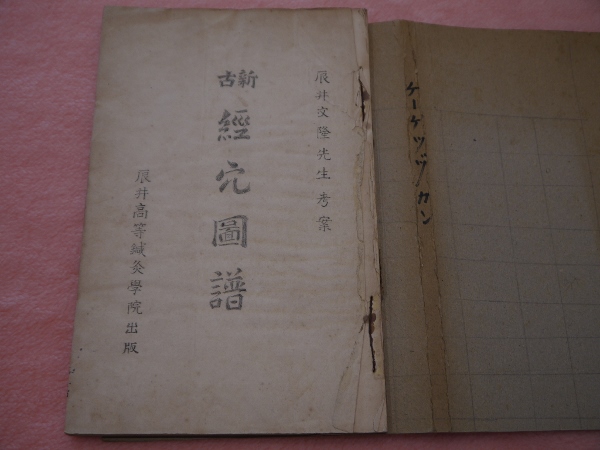 ケーケツヅカン
辰井文隆先生考案
新古
經穴圖譜
辰井高等鍼灸學院出版